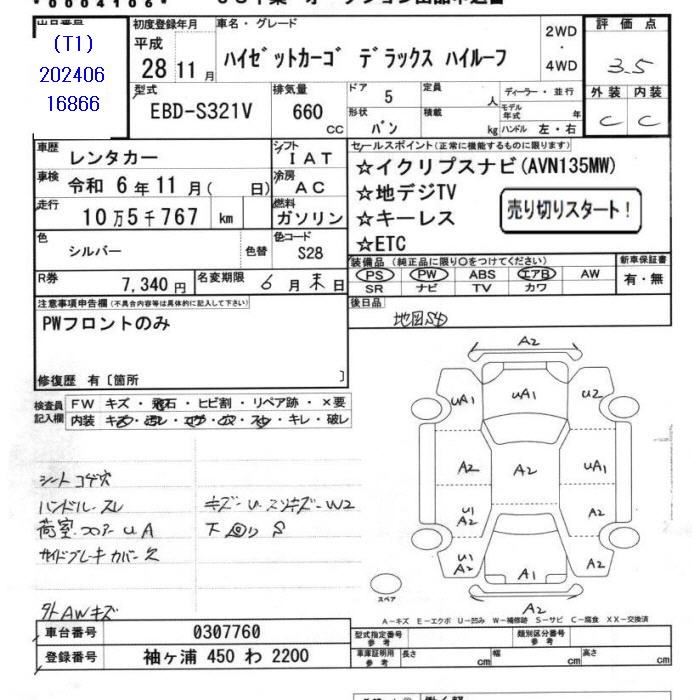 *0004106*
出品番号
(T1)
202406
16866
初度登録年月
平成
28 11 月
車名・グレード
ハイゼットカーゴ デラックス ハイルーフ
2WD
・
4WD
評価点
3.5
外装 内装
C C
型式
EBD-S321V
排気量
660
CC
ドア 5
定員 人
形状 バン
積載 kg
ディーラー・並行
モデル年式 年
ハンドル 左・右
車歴 レンタカー
シフト IAT
車検 令和 6年11月( 日)
冷房 AC
走行 10万5千767 km
燃料 ガソリン
色 シルバー 色替
色コード S28
R券 7,340円
名変期限 6月末日
セールスポイント(正常に機能するものに限ります)
☆イクリプスナビ(AVN135MW)
☆地デジTV
☆キーレス
☆ETC
売り切りスタート!
装備品(純正品に限り○をつけてください)
PS PW ABS エアB AW
SR ナビ TV カワ
新車保証書
有・無
後日品
地図SD
注意事項申告欄(不具合内容等は具体的に記入して下さい)
PWフロントのみ
修復歴 有〔箇所 〕
検査員記入欄
FW キズ・飛石・ヒビ割・リペア跡・×要
内装 キズ・汚レ・エグ・穴・スレ・キレ・破レ
シート コゲ穴
ハンドル・スレ
荷室・フロアー UA
サイドブレーキカバー欠
外AWキズ
キズ・U・スソキズ・W2
下回りS
A2
UA1 UA1 U2
A2 A2 UA1
U1
A2 A2
U1
A2 A1 A2
A2
スペア
A-キズ E-エクボ U-凹み W-補修跡 S-サビ C-腐食 XX-交換済
車台番号 0307760
登録番号 袖ヶ浦 450 わ 2200
型式指定番号 参考
類別区分番号 参考
車庫証明用 参考
長さ cm 幅 cm 高さ cm